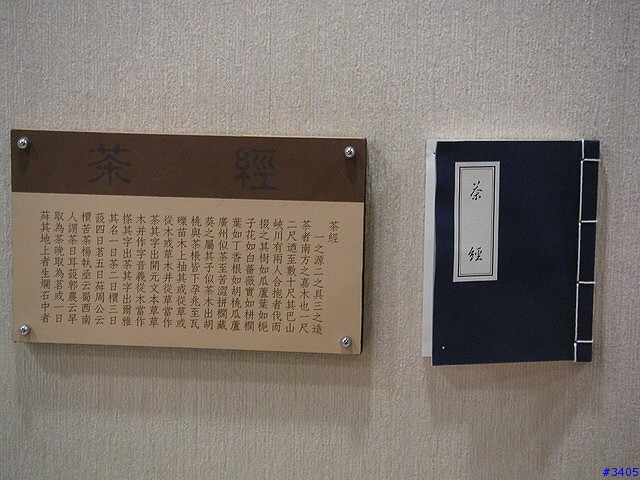 茶經
茶經
一之源二之具三之造
茶者南方之嘉木也一尺
二尺迺至數十尺其巴山
峽川有兩人合抱者伐而
掇之其樹如瓜蘆葉如梔
子花如白薔薇實如栟櫚
葉如丁香根如胡桃瓜蘆
廣州似茶至苦澀拼櫚藏
葵之屬其子似茶木出胡
桃與茶根皆下孕兆至瓦
礫苗木上抽其或從草或
從木或草木并從草當作
茶其字出開元文本草草
木并作字音義從木當作
搽其字出茶其字出爾雅
其名一曰茶二曰檟三曰
蔎四曰茗五曰荈周公云
檟苦茶楊執丞云蜀西南
人謂茶曰耳蔎郭農云早
取為茶晚取為茗或一曰
荈其地上者生爛石中者
茶經
#3405